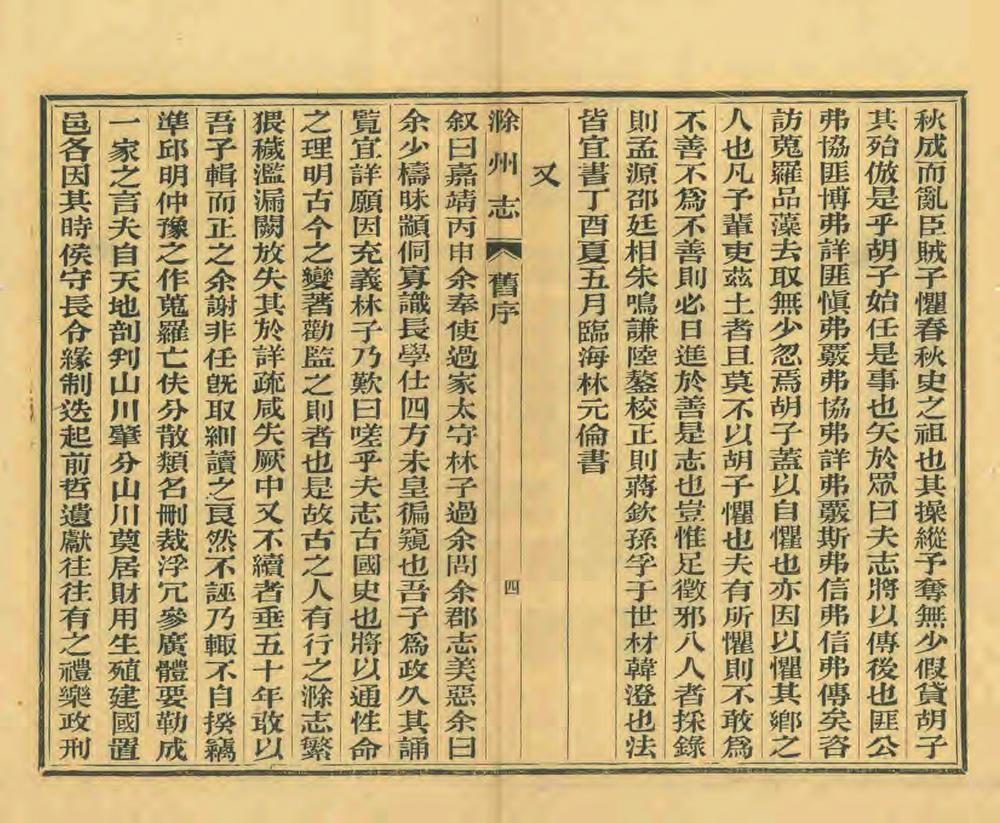 秋成而亂臣賊子懼春秋史之祖也其操縱予奪無少假貸胡子
其殆倣是乎胡子始任是事也矢於眾曰夫志將以傳後也匪公
弗協匪博弗詳匪愼弗覈弗協弗詳弗覈斯弗信弗信弗傳矣咨
訪蒐羅品藻去取無少忽焉胡子蓋以自懼也亦因以懼其鄉之
人也凡予輩吏茲土者且莫不以胡子懼也夫有所懼則不敢爲
不善不爲不善則必日進於善是志也豈惟足徵邪八人者採錄
則孟源邵廷相朱鳴謙陸鏊校正則蔣欽孫孚于世材韓澄也法
皆宜書丁酉夏五月臨海林元倫書
又
滁州志 舊序 四
叙曰嘉靖丙申余奉使過家太守林子過余問余郡志美惡余曰
余少檮昧顓侗寡識長學仕四方未皇徧窺也吾子爲政久其誦
覽宜詳願因充義林子乃歎曰嗟乎夫志古國史也將以通性命
之理明古今之變著勸監之則者也是故古之人有行之滁志繁
猥穢濫漏闕放失其於詳疏咸失厥中又不續者垂五十年敢以
吾子輯而正之余謝非任旣取細讀之良然不誣乃輒不自揆竊
準邱明仲豫之作蒐羅亡佚分散類名刪裁浮冗參廣體要勒成
一家之言夫自天地剖判山川肇分山川奠居財用生殖建國置
邑各因其時侯守長令緣制迭起前哲遺獻往往有之禮樂政刑